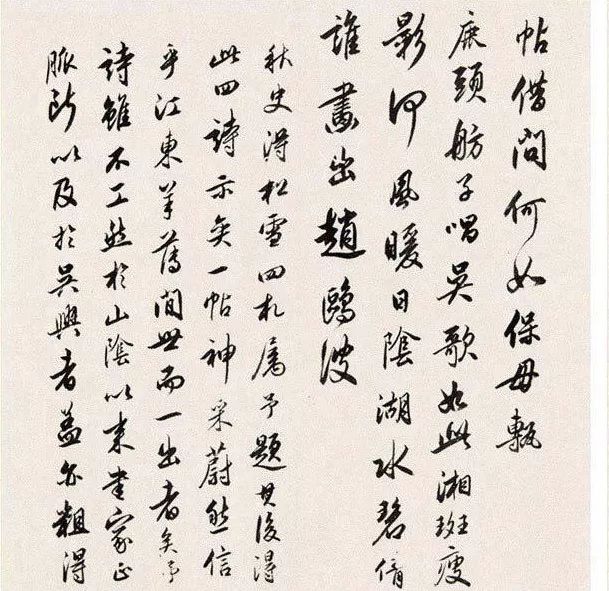 帖借問何如保母甎
鹿頭舫子唱吳歌如此湘斑瘦
影何風暖日陰湖水碧倩
誰畫出趙鷗波
秋史得松雪四札屬予題其後得
此四詩示矣一帖神采蔚然信
乎江東羊薄間世而一出者矣予
詩雖不工然於山陰以來書家正
脈所以及於吳興者蓋亦粗得